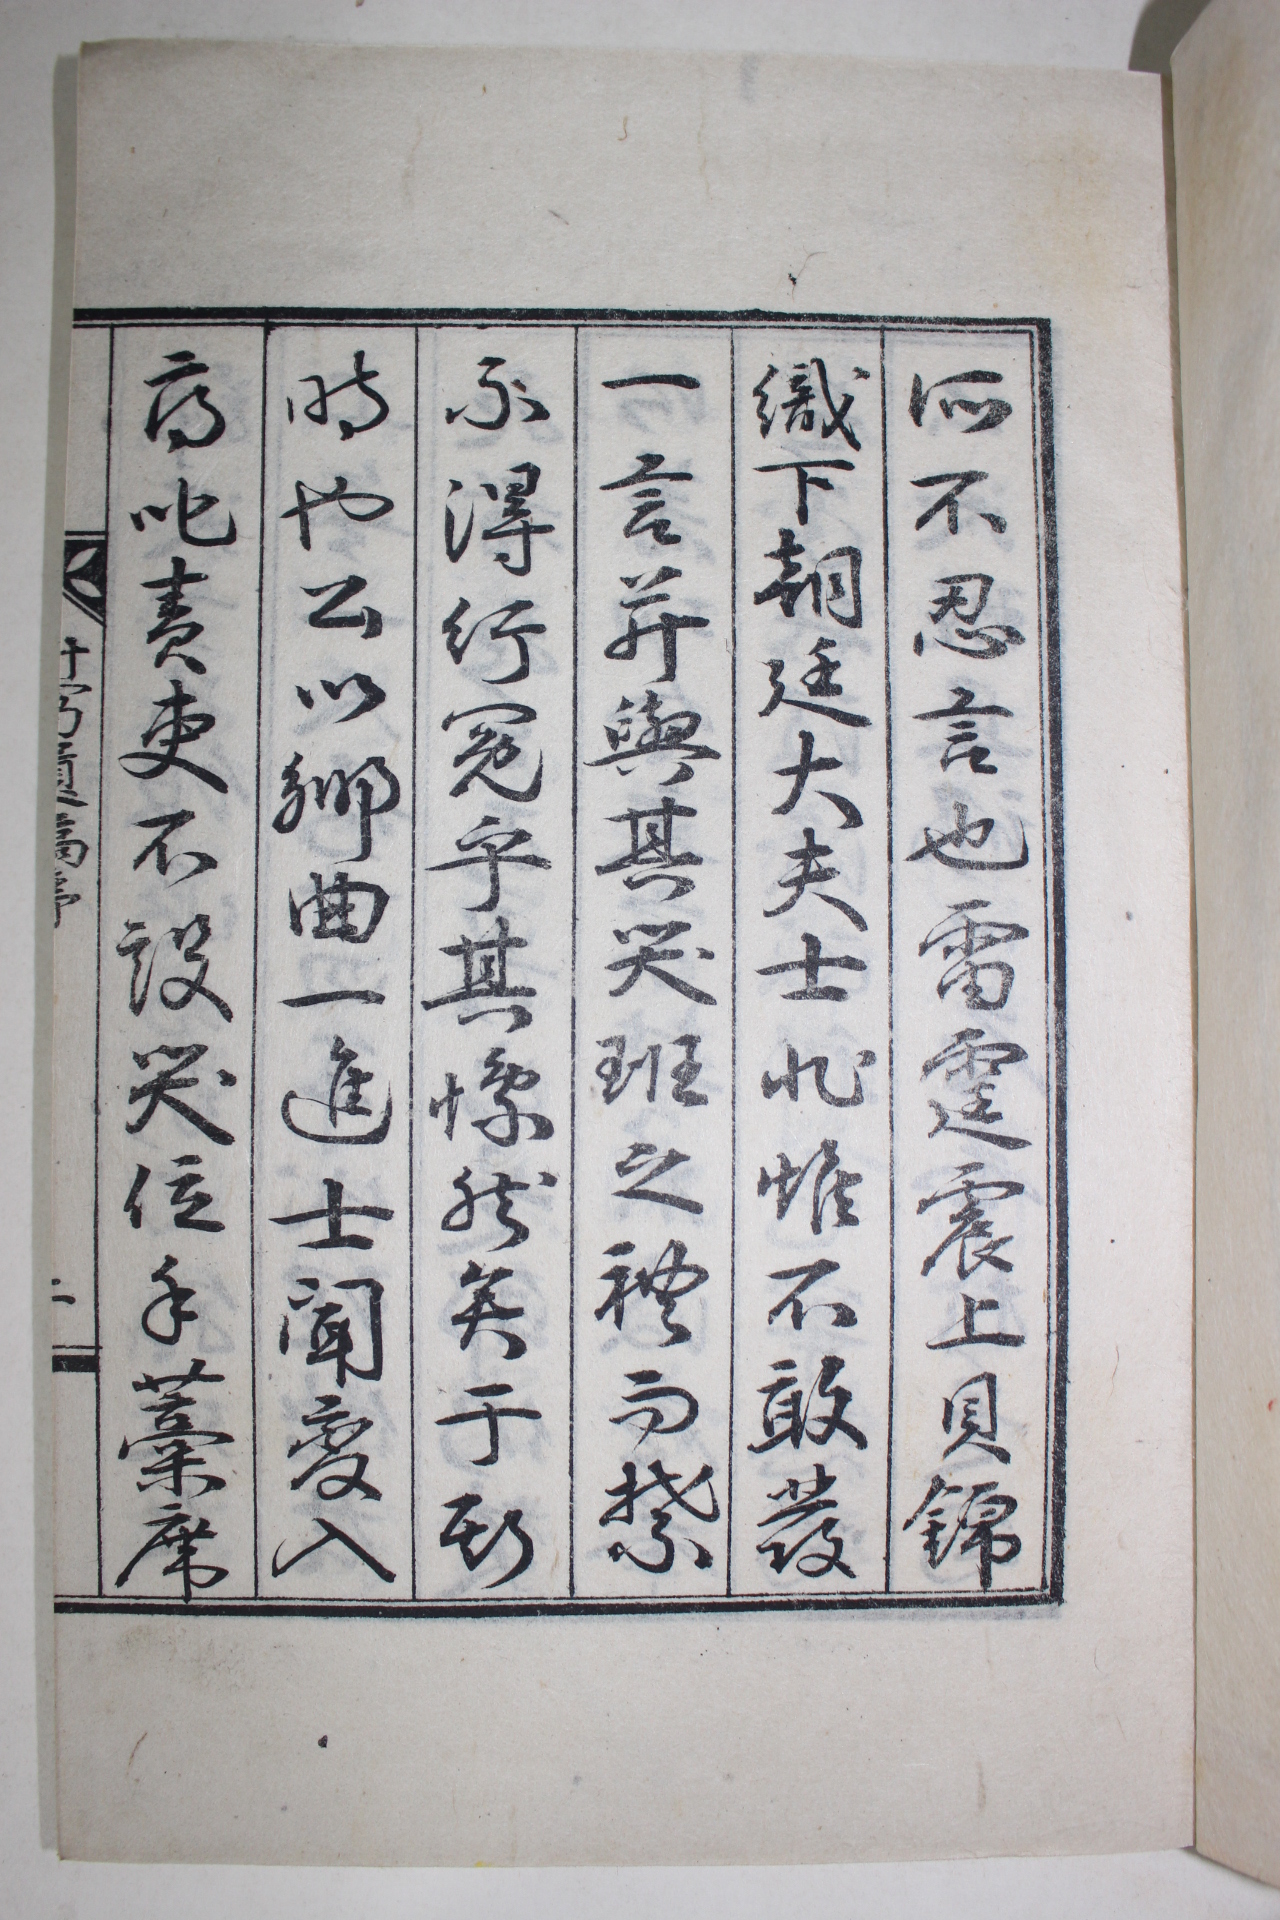 所不忍言也雷霆震上貝錦
織下朝廷大夫士非惟不敢發
一言幷與其哭班之禮而禁
不得行冤乎其慘然矣于斯
時也公以鄉曲一進士聞變入
府叱責吏不設哭位手藁席